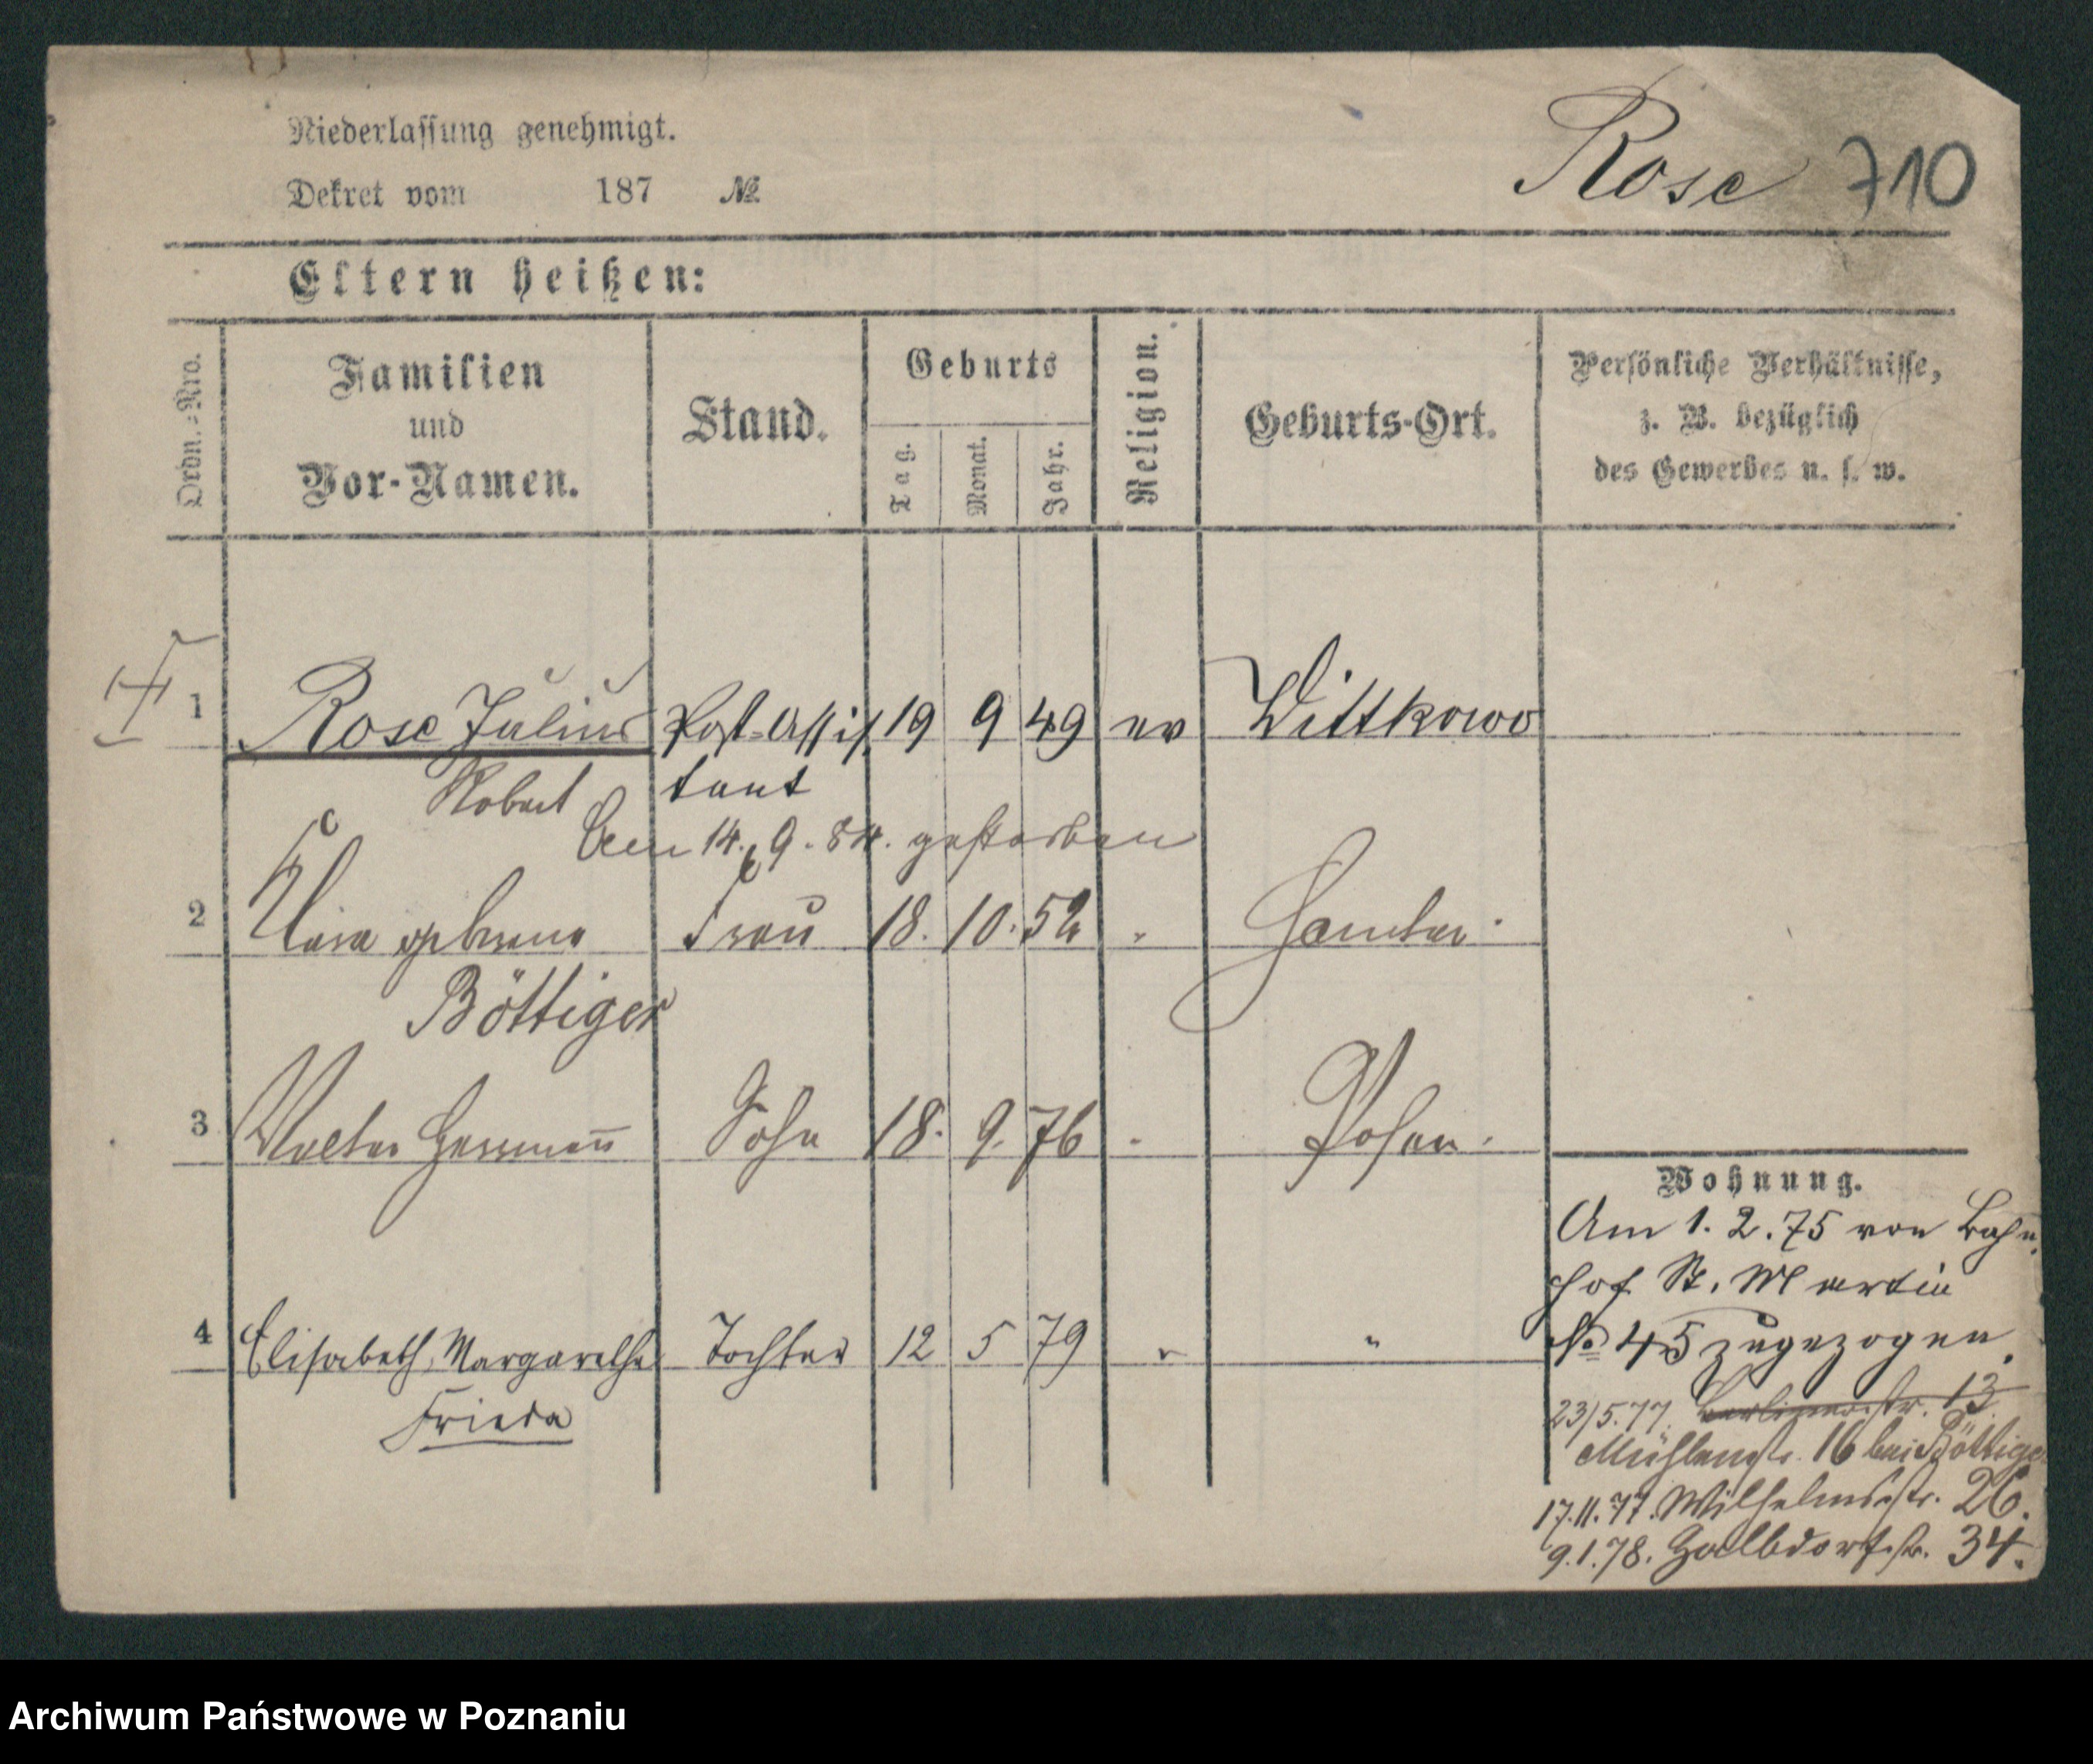 Niederlassung genehmigt.
Dekret vom 187 №
Rose 710
Eltern heißen:
Ordn.-Nro.
Familien
und
Vor-Namen.
Stand.
Geburts
Tag.
Monat.
Jahr.
Religion.
Geburts-Ort.
Persönliche Verhältnisse,
z. B. bezüglich
des Gewerbes u. s. w.
1 Rose Julius Post-Assis 19 9 49 ev Wittkowo
Robert tent
Am 14. 9. 84. gestorben
2 Clara geborene Frau 18. 10. 52 " Samter.
Böttiger
3 Walter Herrmann Sohn 18. 9. 76 " Posen.
4 Elisabeth Margarethe Tochter 12 5 79 " "
Frieda
Wohnung.
Am 1. 2. 75 von Bahn-
hof St. Martin
No 45 zugezogen.
23/5.77. Berlinerstr. 13
Mühlenstr. 16 bei Böttiger
17.11.77. Wilhelmsstr. 26.
9.1.78. Halbdorfstr. 34.
Archiwum Państwowe w Poznaniu